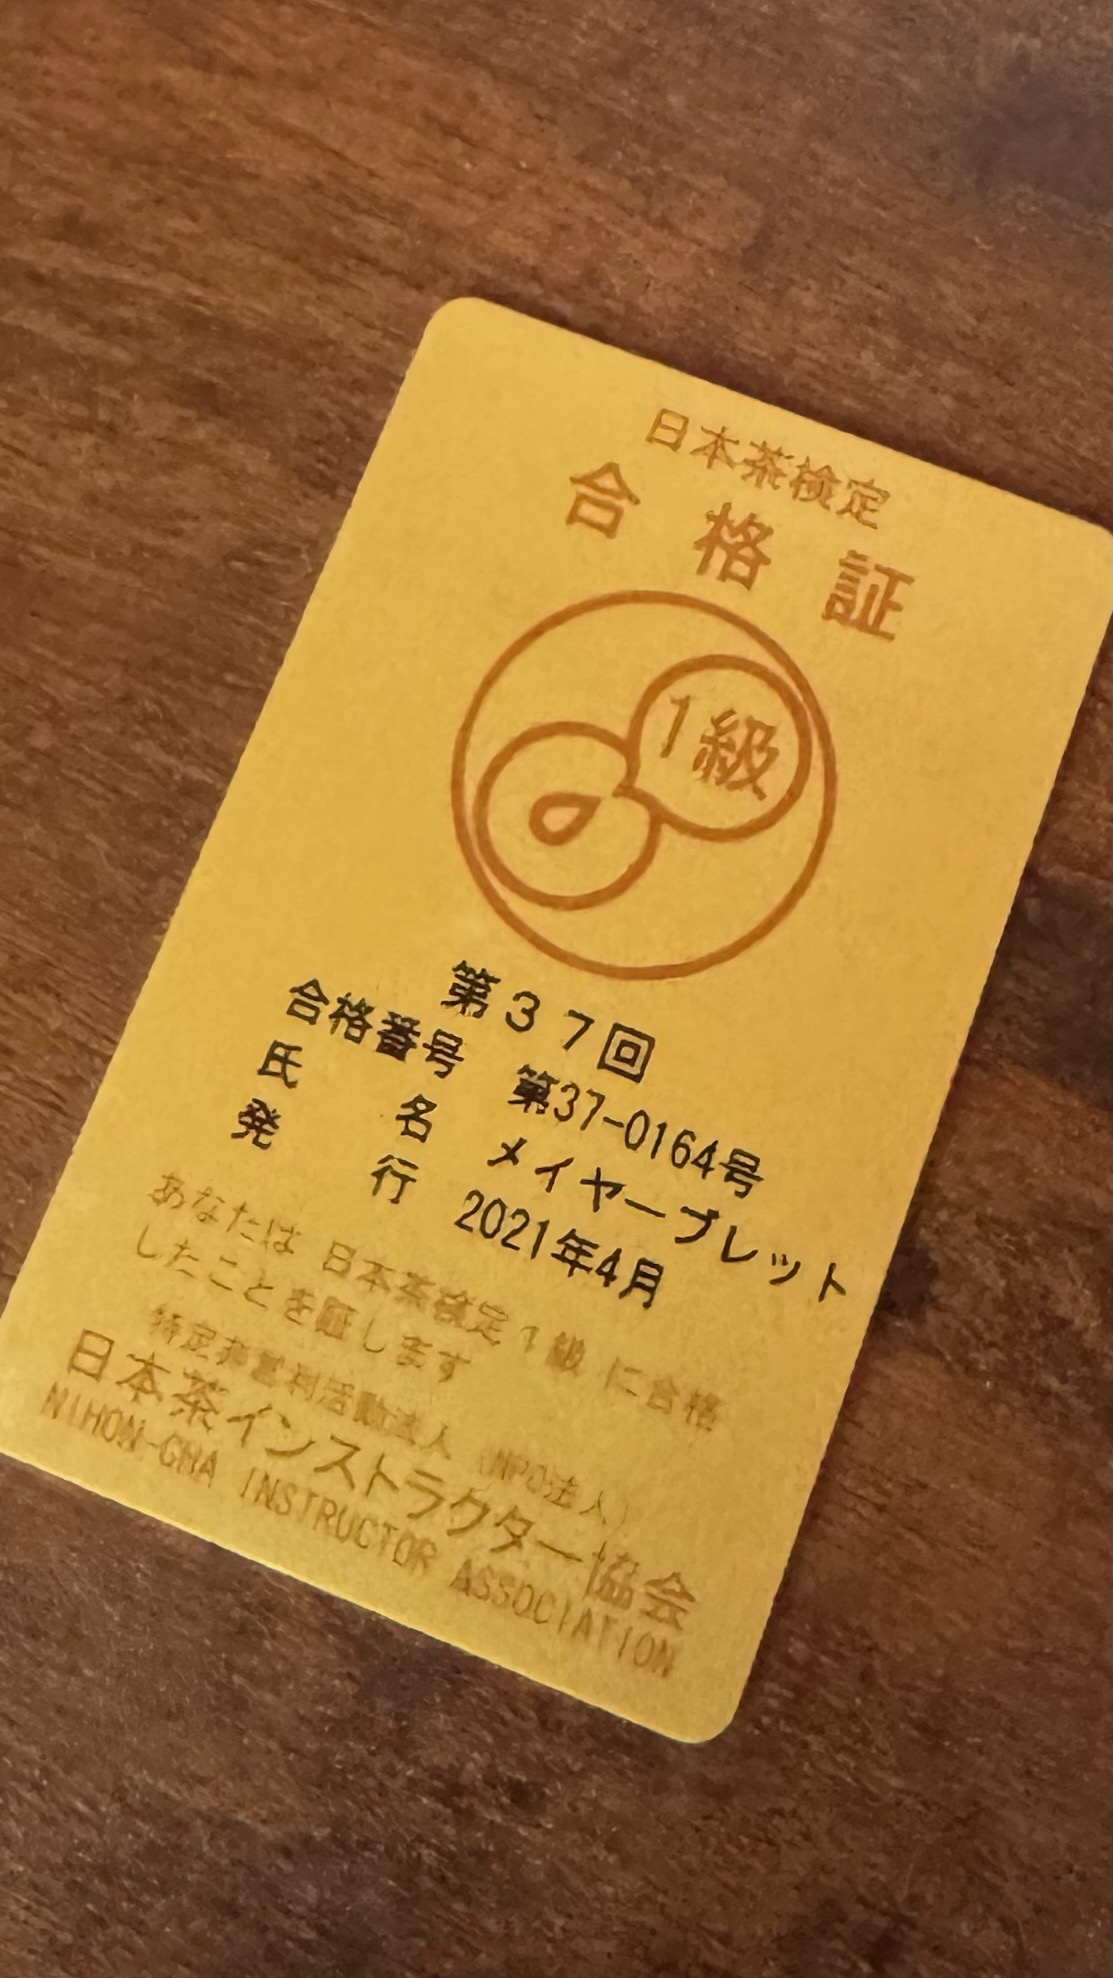 日本茶検定
合格証
1級
第37回
合格番号 第37-0164号
氏名 メイヤーブレット
発行 2021年4月
あなたは 日本茶検定 1級 に合格
したことを証します
特定非営利活動法人 (NPO法人)
日本茶インストラクター協会
NIHON-CHA INSTRUCTOR ASSOCIATION